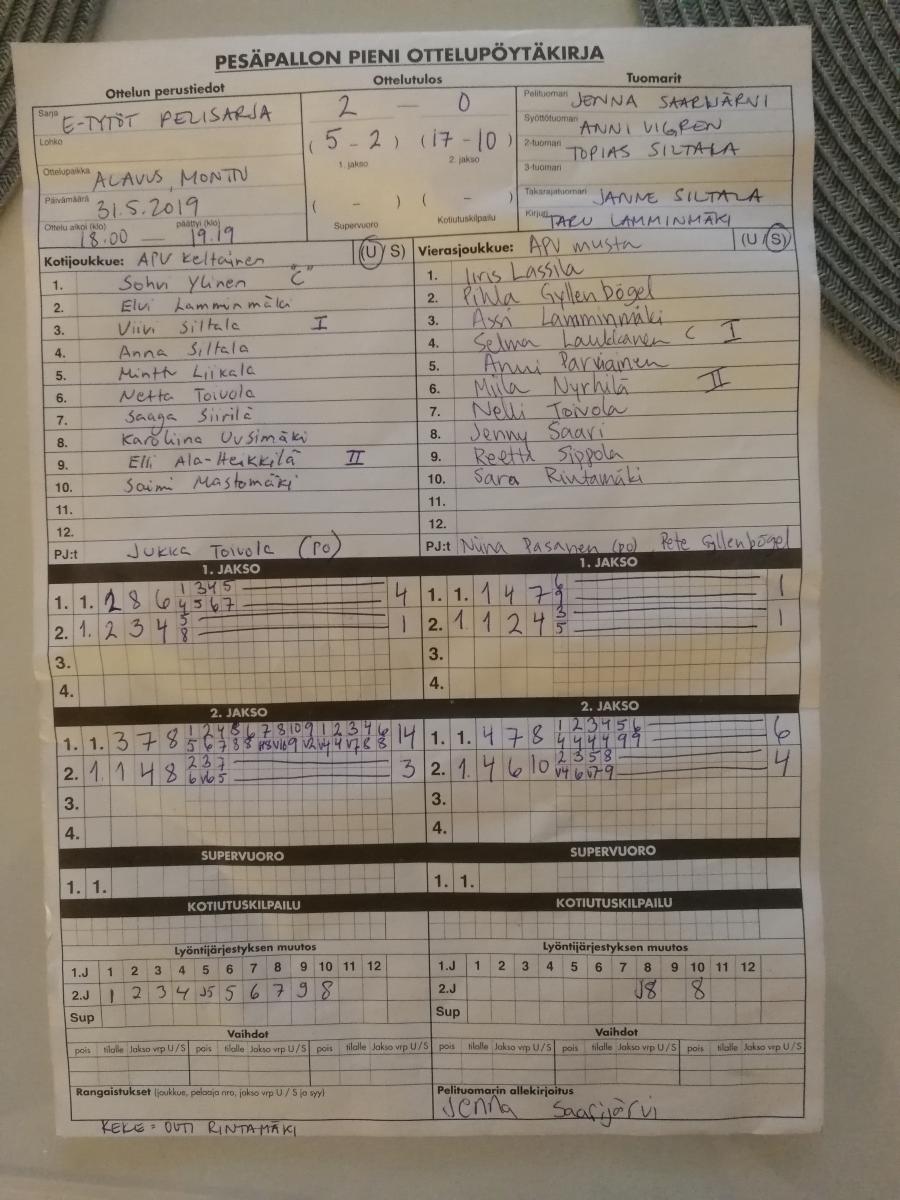 PESÄPALLON PIENI OTTELUPÖYTÄKIRJA
Ottelun perustiedot
Sarja E-TYTÖT PELISARJA
Lohko
Ottelupaikka ALAVUS, MONTTU
Päivämäärä 31.5.2019
Ottelu alkoi (klo) päättyi (klo)
18.00 — 19.19
Ottelutulos
2 — 0
(5 - 2) (17 - 10)
1. jakso 2. jakso
( - ) ( - )
Supervuoro Kotiutuskilpailu
Tuomarit
Pelituomari JENNA SAARIJÄRVI
Syöttötuomari ANNI VIGREN
2-tuomari TOPIAS SILTALA
3-tuomari
Takarajatuomari JANNE SILTALA
Kirjuri TARU LAMMINMÄKI
Kotijoukkue: APV Keltainen (U/S)
1. Sohvi Ylinen "C"
2. Elvi Lamminmäki
3. Viivi Siltala I
4. Anna Siltala
5. Minttu Liikala
6. Netta Toivola
7. Saaga Siirilä
8. Karoliina Uusimäki
9. Elli Ala-Heikkilä II
10. Saimi Mastomäki
11.
12.
PJ:t Jukka Toivola (PO)
Vierasjoukkue: APV musta (U/S)
1. Iiris Lassila
2. Pihla Gyllenbögel
3. Assi Lamminmäki
4. Selma Laukkanen C I
5. Anni Parviainen
6. Miila Nyrhilä II
7. Nelli Toivola
8. Jenny Saari
9. Reetta Sippola
10. Sara Rintamäki
11.
12.
PJ:t Niina Pasanen (po) Pete Gyllenbögel
1. JAKSO
1. 1. 2 8 6 1 3 4 5 4
4 5 6 7
2. 1. 2 3 4 5 1
8
3.
4.
1. JAKSO
1. 1. 1 4 7 6 1
9
2. 1. 1 2 4 3 1
5
3.
4.
2. JAKSO
1. 1. 3 7 8 1 2 4 8 6 7 8 10 9 1 2 3 4 6 14
2. 1. 1 4 8 2 3 7 3
6 V6 5
3.
4.
2. JAKSO
1. 1. 4 7 8 1 2 3 4 5 6 6
4 4 4 4 9 9
2. 1. 4 6 10 2 3 5 8 4
V4 6 V7 9
3.
4.
SUPERVUORO
1. 1.
SUPERVUORO
1. 1.
KOTIUTUSKILPAILU
KOTIUTUSKILPAILU
Lyöntijärjestyksen muutos
1.J 1 2 3 4 5 6 7 8 9 10 11 12
2.J 1 2 3 4 J5 5 6 7 9 8
Sup
Lyöntijärjestyksen muutos
1.J 1 2 3 4 5 6 7 8 9 10 11 12
2.J J8 8
Sup
Vaihdot
pois tilalle Jakso vrp U/S pois tilalle Jakso vrp U/S pois tilalle Jakso vrp U/S
Vaihdot
pois tilalle Jakso vrp U/S pois tilalle Jakso vrp U/S pois tilalle Jakso vrp U/S
Rangaistukset (joukkue, pelaaja nro, jakso vrp U / S ja syy)
Pelituomarin allekirjoitus
Jenna Saarijärvi
KEKE = OUTI RINTAMÄKI